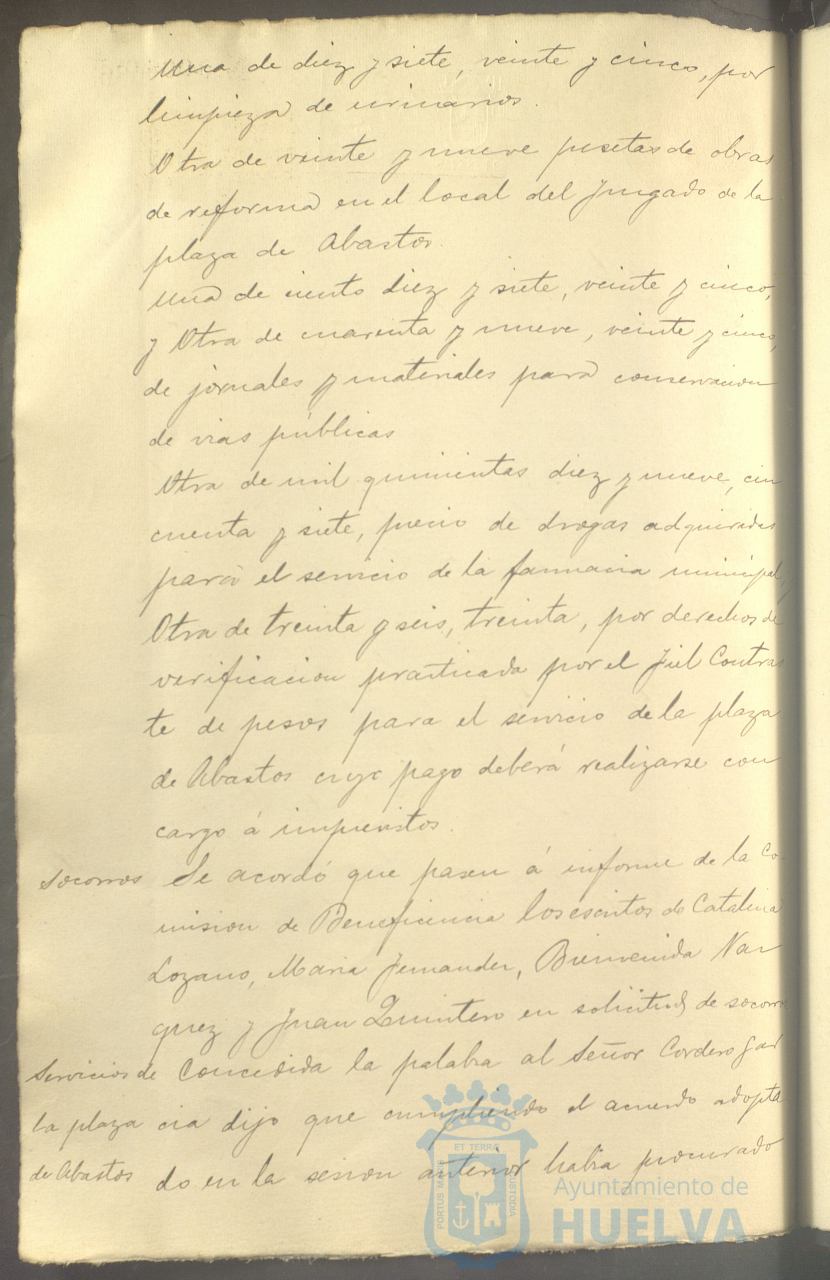 Una de diez y siete, veinte y cinco, por
limpieza de urinarios.
Otra de veinte y nueve pesetas de obras
de reforma en el local del Juzgado de la
plaza de Abastos.
Una de ciento diez y siete, veinte y cinco,
y Otra de cuarenta y nueve, veinte y cinco,
de jornales y materiales para conservacion
de vias públicas
Otra de mil quinientas diez y nueve, cin
cuenta y siete, precio de drogas adquiridas
para el servicio de la farmacia municipal,
Otra de treinta y seis, treinta, por derechos de
verificacion practicada por el fiel Contras
te de pesos para el servicio de la plaza
de Abastos cuyo pago deberá realizarse con
cargo á imprevistos.
Socorros Se acordó que pasen á informe de la Co-
mision de Beneficencia los escritos de Catalina
Lozano, Maria Fernandez, Bienvenida Var
quez y Juan Quintero en solicitud de socorro
Servicios de Concedida la palabra al Señor Cordero Gar
la plaza cia dijo que cumpliendo el acuerdo adopta
de Abastos do en la sesion anterior habia procurado
PORTUS MARIS ET TERRAE CUSTODIA
Ayuntamiento de
HUELVA